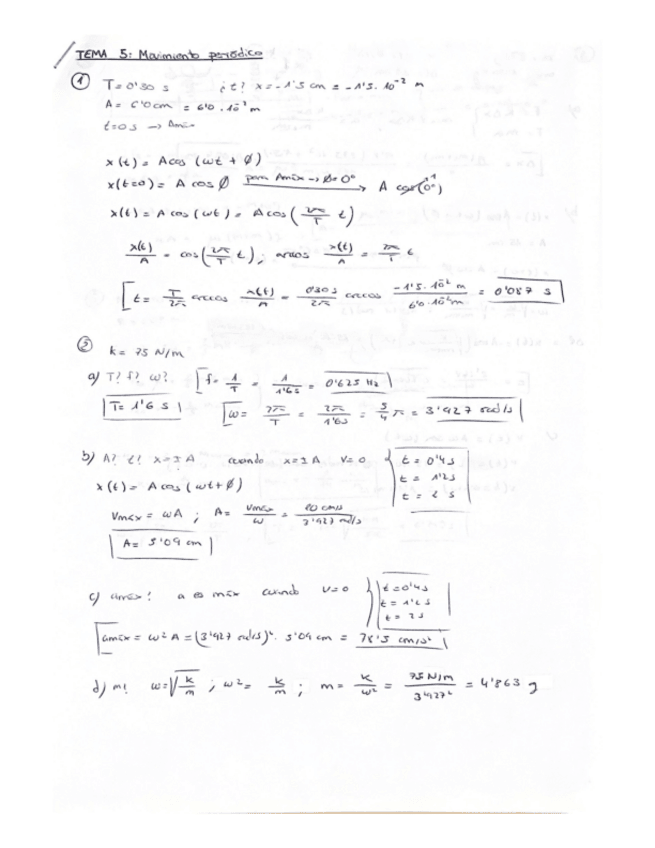 TEMA 5: Movimiento periódico
① T = 0'30 s ¿t? x = -1'5 cm = -1'5·10⁻² m
A = 6'0 cm = 6'0·10⁻² m
t=0 s → Amáx
x(t) = A cos (ωt + ϕ)
x(t=0) = A cos ϕ para Amáx → ϕ=0° A cos(0°) 1
x(t) = A cos (ωt) = A cos (2π/T t)
x(t)/A = cos (2π/T t); arcos x(t)/A = 2π/T t
t = T/2π arccos x(t)/A = 0'30 s/2π arccos -1'5·10⁻² m/6'0·10⁻² m = 0'087 s
② k = 75 N/m
a) T? f? ω? f = 1/T = 1/1'6 s = 0'625 Hz
T = 1'6 s ω = 2π/T = 2π/1'6s = 5/4 π = 3'927 rad/s
b) A? t? x = ±A cuando x = ±A v=0 t = 0'4 s
t = 1'2 s
t = 2 s
x(t) = A cos (ωt + ϕ)
Vmáx = ωA; A = Vmáx/ω = 20 cm/s/3'927 rad/s
A = 5'09 cm
c) amáx? a es máx cuando v=0 t = 0'4 s
t = 1'2 s
t = 2 s
amáx = ω² A = (3'927 rad/s)² · 5'09 cm = 78'5 cm/s²
d) m? ω = √k/m; ω² = k/m; m = k/ω² = 75 N/m/3'927² = 4'863 g